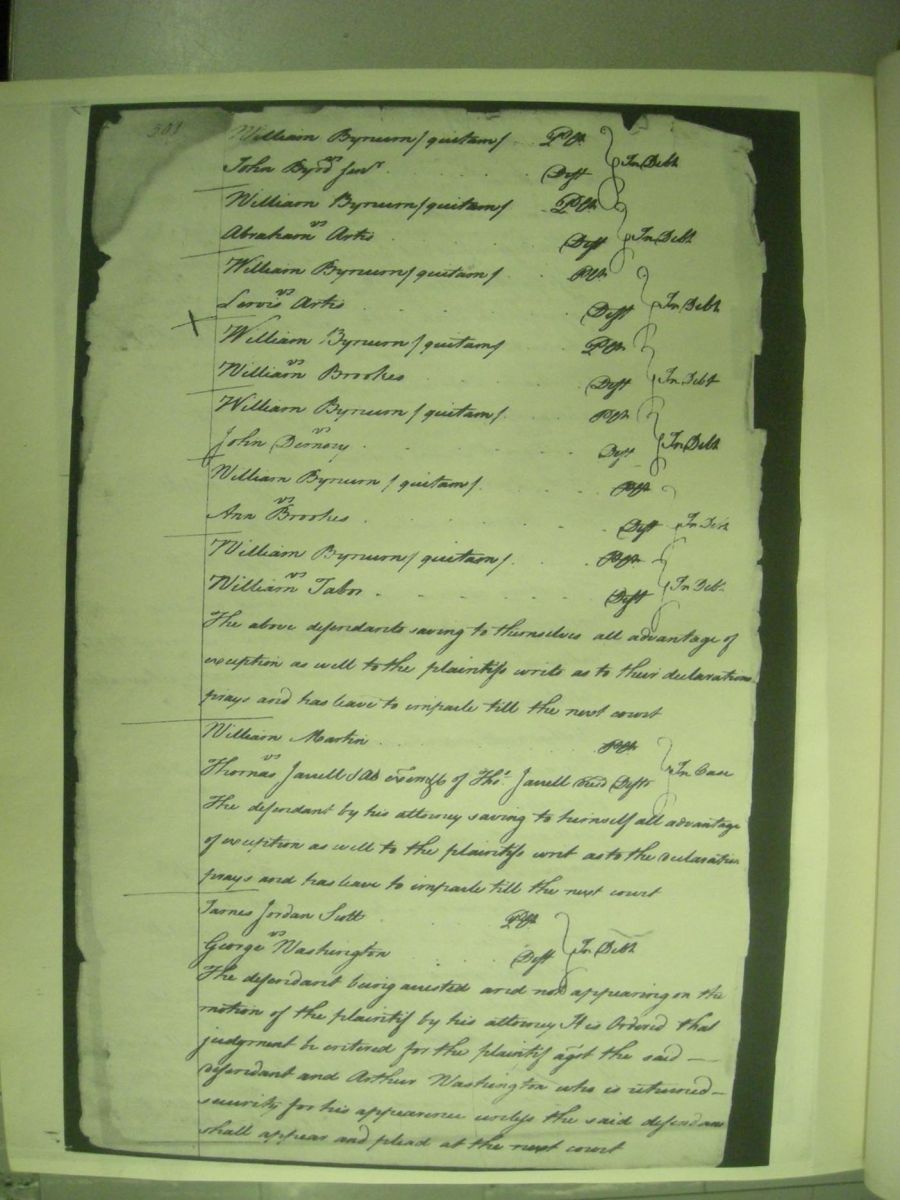 William Bynum / quitam / Plt
vs } In Debt
John Byrd Senr Deft
William Bynum / quitam / Plt
vs } In Debt
Abraham Artis Deft
William Bynum / quitam / Plt
vs } In Debt
Lewis Artis Deft
William Bynum / quitam / Plt
vs } In Debt
William Brookes Deft
William Bynum / quitam / Plt
vs } In Debt
John Deft
William Bynum / quitam / Plt
vs } In Debt
Ann Brookes Deft
William Bynum / quitam / Plt
vs } In Debt
William Tabor Deft
The above defendants saving to themselves all advantage of
exception as well to the plaintifs writs as to their declarations
prays and has leave to imparle till the next court
William Martin Plt
vs } In Case
Thomas Jarrell of Thos. Jarrell Decd Deft
The defendant by his attorney saving to himself all advantage
of exception as well to the plaintifs writ as to the declaration
prays and has leave to imparle till the next court
James Jordan Scott Plt
vs } In Debt
George Washington Deft
The defendant being arrested and not appearing on the
motion of the plaintif by his attorney It is Ordered that
judgment be entered for the plaintif agst the said —
defendant and Arthur Washington who is returned —
security for his appearence unless the said defendant
shall appear and plead at the next court